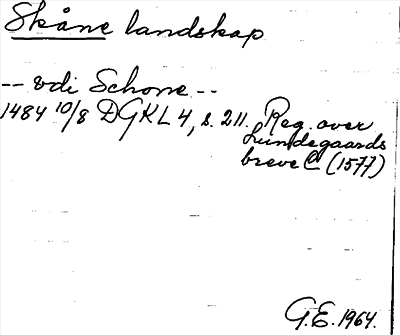 Skåne landskap
-- vdi Schone --
1484 10/8 DGKL 4, s. 211. Reg. over
Lundegaards
breve C (1577)
G.E. 1964.